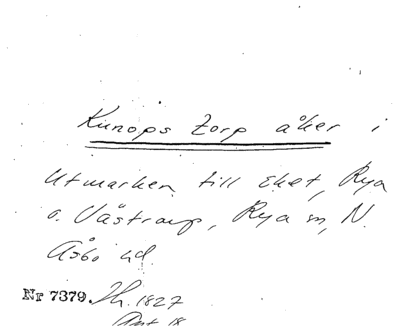 Kunops torp åker i
Utmarken till Eket, Rya
o. Västraup, Rya sn, N.
Åsbo hd
Nr 7379. Jh. 1827